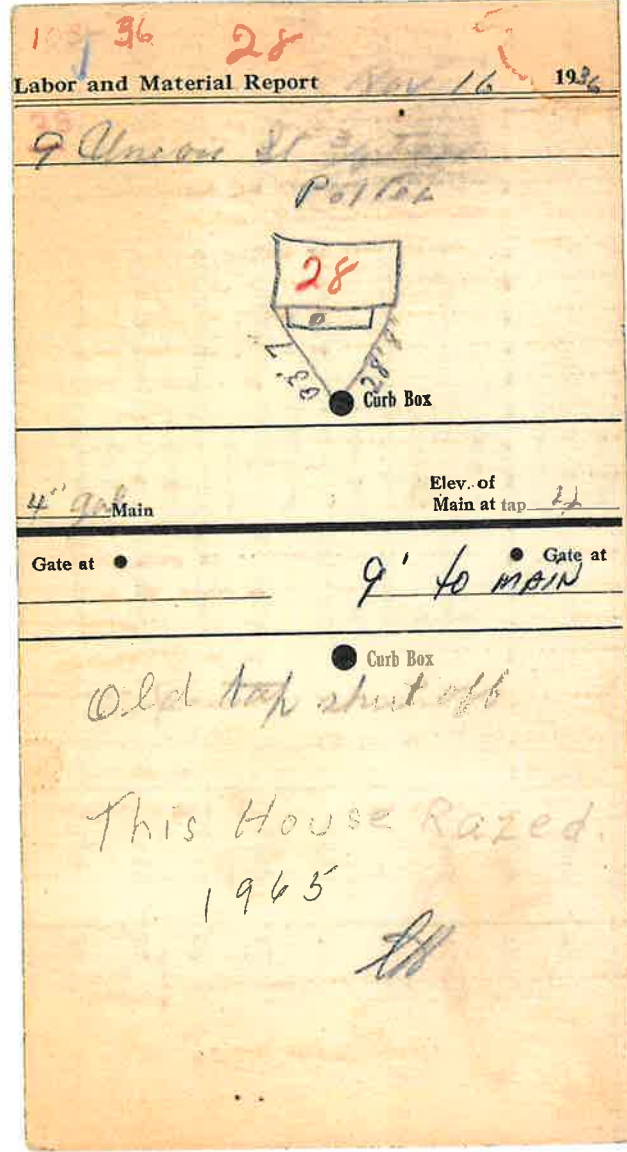 36 28
Labor and Material Report Nov 16 1936
9 Union St
Potter
28
33' 7" 28' 8"
Curb Box
4" gal Main
Elev. of
Main at tap
Gate at
Gate at
9' to MAIN
Curb Box
Old tap shut off
This House Razed.
1965